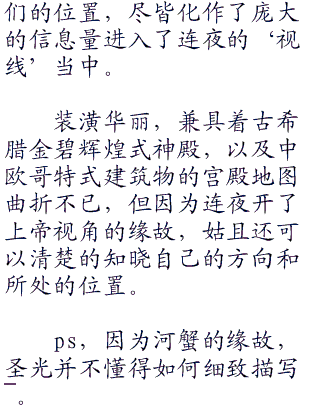 们的位置，尽皆化作了庞大
的信息量进入了连夜的‘视
线’当中。
装潢华丽，兼具着古希
腊金碧辉煌式神殿，以及中
欧哥特式建筑物的宫殿地图
曲折不已，但因为连夜开了
上帝视角的缘故，姑且还可
以清楚的知晓自己的方向和
所处的位置。
ps，因为河蟹的缘故，
圣光并不懂得如何细致描写
。